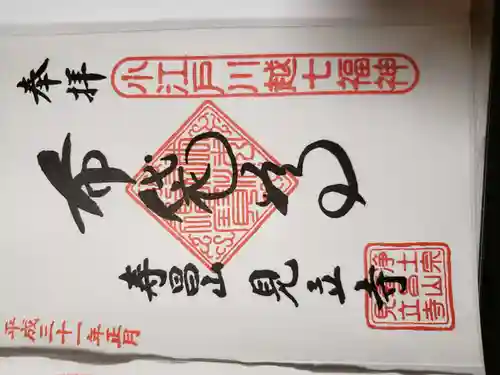 小江戸川越七福神
奉拝
布袋尊
寿昌山 見立寺
浄土宗
寿昌山
見立寺
平成三十一年正月